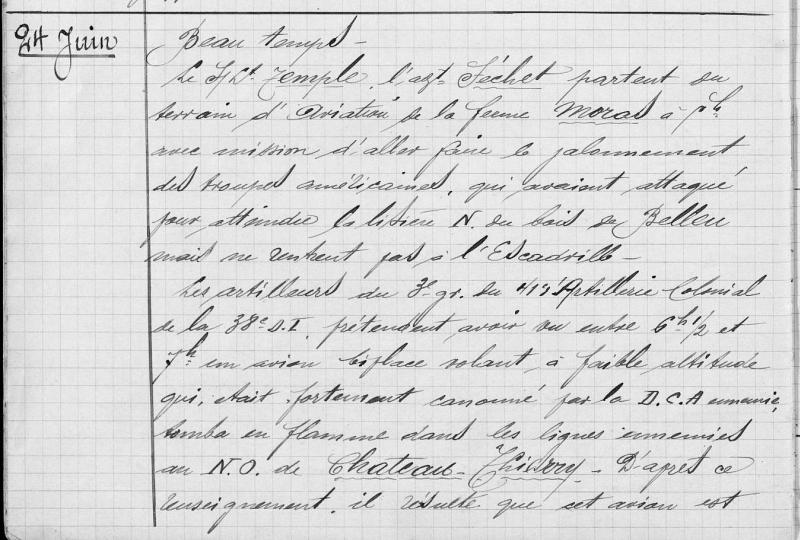 24 Juin
Beau temps -
Le S/Lt Temple, l'asp Séchet partent du
terrain d'Aviation de la ferme Moras à 7h
avec mission d'aller faire le jalonnement
des troupes américaines, qui avaient attaqué
pour atteindre la lisière N. du bois de Belleu
mais ne rentrent pas à l'Escadrille -
Les artilleurs du 3e gr. du Artillerie Colonial
de la 38e D.I. prétendent avoir vu entre 6h 1/2 et
7h un avion biplace volant à faible altitude
qui, était fortement canonné par la D.C.A ennemie,
tomba en flamme dans les lignes ennemies
au N.O. de Chateau-Thierry - D'après ce
renseignement, il résulte que cet avion est